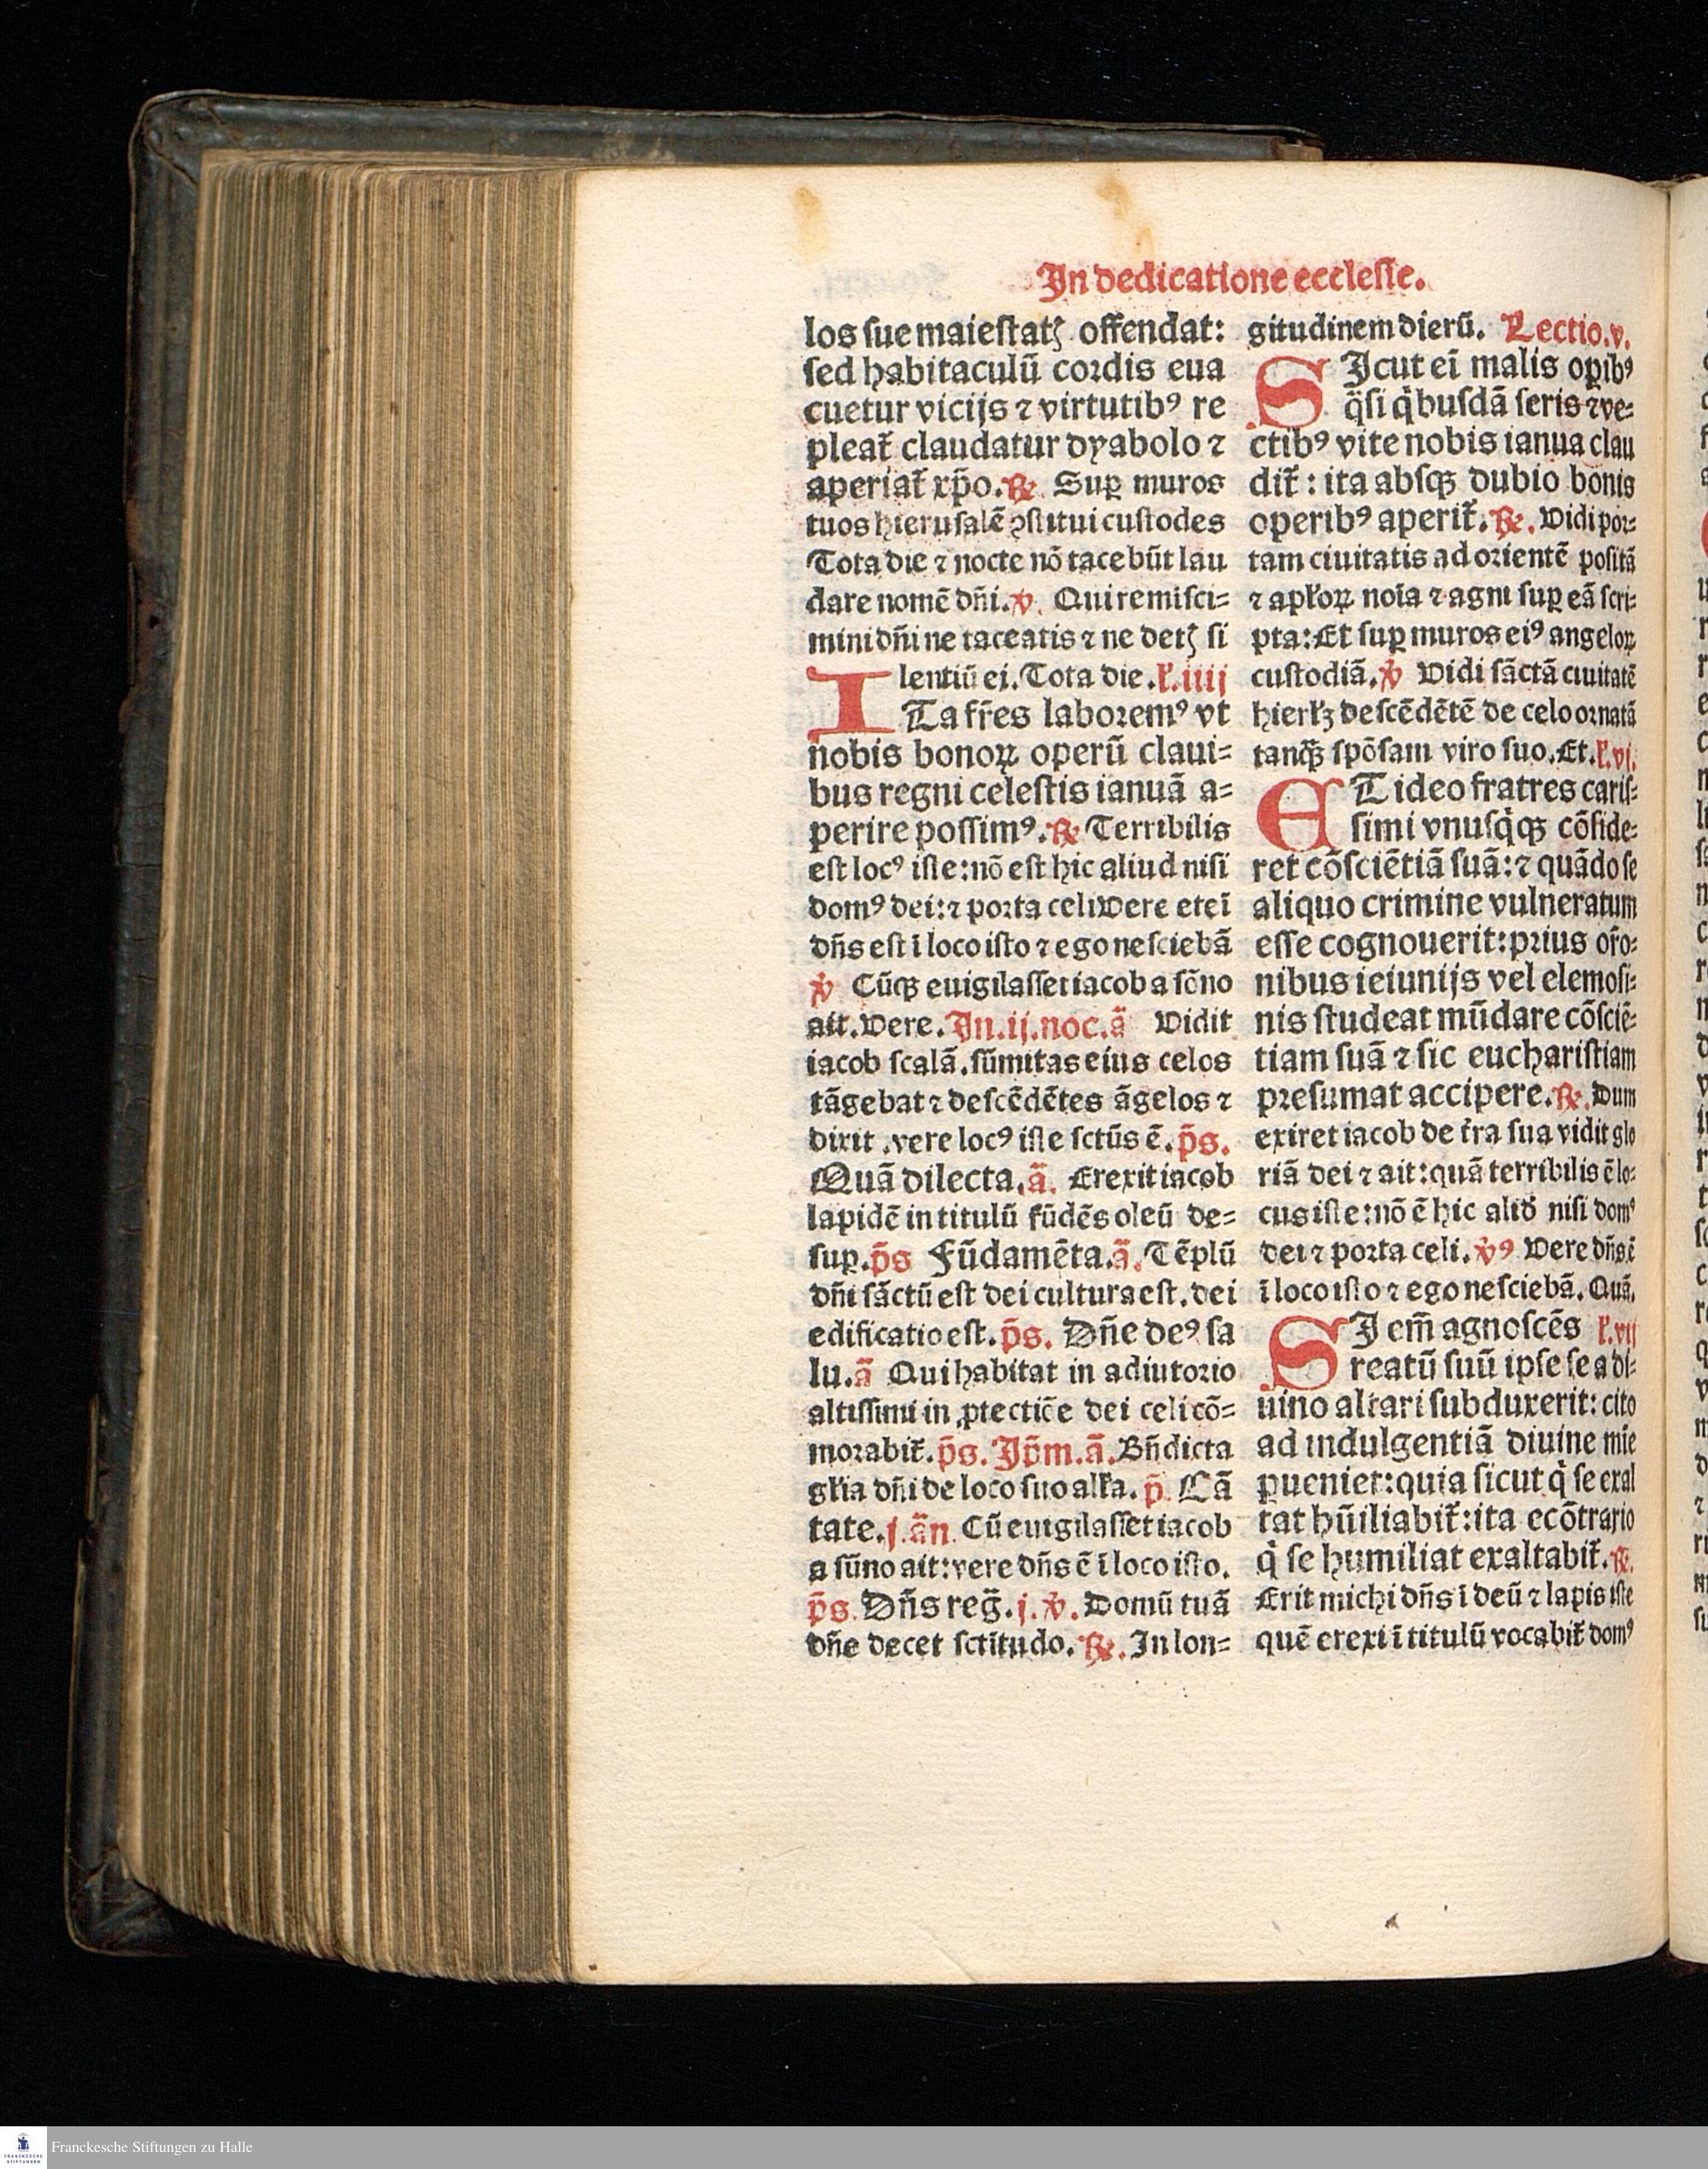 In dedicatione ecclesie.
los sue maiestatꝭ offendat:
sed habitaculū cordis eua
cuetur vicijs ⁊ virtutibꝰ re
pleat᷑ claudatur dyabolo ⁊
aperiat᷑ xp̄o. ℟ Suꝑ muros
tuos hierusalē ꝯstitui custodes
Tota die ⁊ nocte nō tacebūt lau
dare nomē dn̄i. ℣. Qui remisci-
mini dn̄i ne taceatis ⁊ ne detꝭ si
lentiū ei. Tota die. l̄. iiij
ITa fr̄es laboremꝰ vt
nobis bonoꝝ operū claui-
bus regni celestis ianuā a-
perire possimꝰ. ℟ Terribilis
est locꝰ iste: nō est hic aliud nisi
domꝰ dei: ⁊ porta celi Vere etei
dn̄s est ī loco isto ⁊ ego nesciebā
℣ Cūqꝫ euigilasset iacob a sōno
ait. Vere. In. ij. noc. ā Vidit
iacob scalā. sūmitas eius celos
tāgebat ⁊ descēdētes āgelos ⁊
dixit. vere locꝰ iste sctūs ē. p̄s.
Quā dilecta. ā. Erexit iacob
lapidē in titulū fūdēs oleū de-
suꝑ. p̄s Fūdamēta. ā. Tēplū
dn̄i sāctū est dei cultura est. dei
edificatio est. p̄s. Dn̄e deꝰ sa
lu. ā Qui habitat in adiutorio
altissimi in ꝓtectiōe dei celi cō-
morabit᷑. p̄s. Ip̄m. ā. Bn̄dicta
gl̄ia dn̄i de loco suo all̄a. p̄ Cā
tate. j. ān. Cū euigilasset iacob
a sūno ait: vere dn̄s ē ī loco isto.
p̄s. Dn̄s reḡ. j. ℣. Domū tuā
dn̄e decet sctītudo. ℟. In lon-
gitudinem dierū. Lectio. v.
SIcut eī malis oꝑibꝰ
q̄si q̇busdā seris ⁊ ve-
ctibꝰ vite nobis ianua clau
dit᷑: ita absqꝫ dubio bonis
operibꝰ aperit᷑. ℟. Vidi por-
tam ciuitatis ad orientē positā
⁊ apl̄oꝝ noīa ⁊ agni suꝑ eā scri-
pta: Et suꝑ muros eiꝰ angeloꝝ
custodiā. ℣ Vidi sāctā ciuitatē
hierl̄ꝫ descēdētē de celo ornatā
tanqꝫ spōsam viro suo. Et. l̄. vj.
ET ideo fratres caris-
simi vnusq̇qꝫ cōside-
ret cōsciētiā suā: ⁊ quādo se
aliquo crimine vulneratum
esse cognouerit: prius or̄o-
nibus ieiunijs vel elemosi-
nis studeat mūdare cōsciē-
tiam suā ⁊ sic eucharistiam
presumat accipere. ℟. Dum
exiret iacob de t̄ra sua vidit glo
riā dei ⁊ ait: quā terribilis ē lo-
cus iste: nō ē hic aliď nisi domꝰ
dei ⁊ porta celi. ℣ꝰ Vere dn̄s ē
ī loco isto ⁊ ego nesciebā. Quā.
SI em̄ agnoscēs l̄. vij
reatū suū ipse se a di-
uino altari subduxerit: cito
ad indulgentiā diuine mīe
ꝑueniet: quia sicut q̇ se exal
tat hūiliabit᷑: ita ecōtrario
q̇ se humiliat exaltabit᷑. ℟.
Erit michi dn̄s ī deū ⁊ lapis iste
quē erexi ī titulū vocabit᷑ domꝰ
Franckesche Stiftungen zu Halle
FRANCKESCHE
STIFTUNGEN